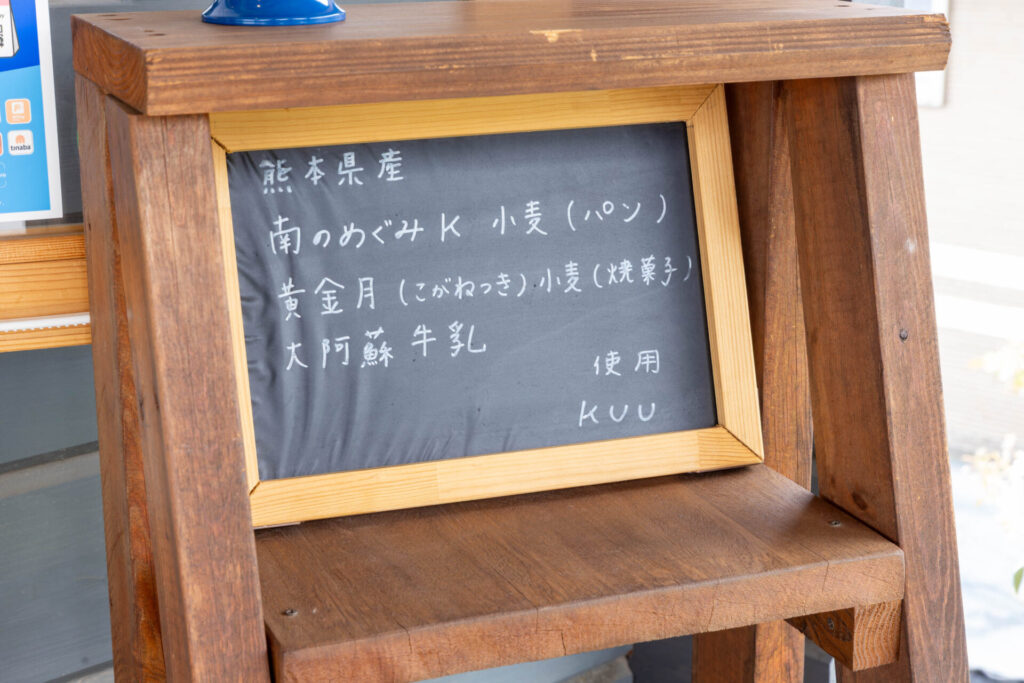 熊本県産
南のめぐみK 小麦(パン)
黄金月(こがねつき)小麦(焼菓子)
大阿蘇牛乳
使用
KUU